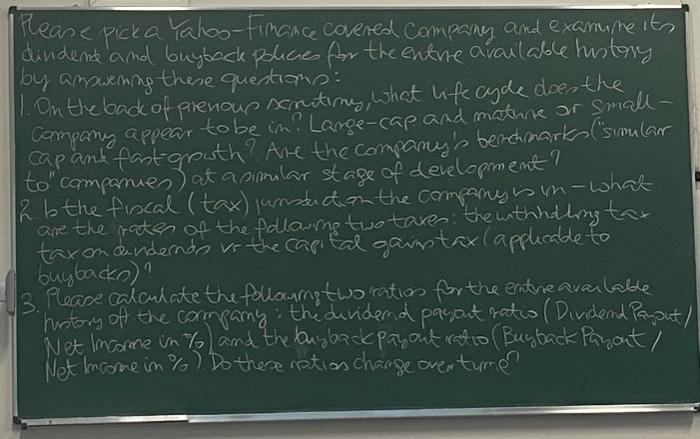 Please pick a Yahoo-Finance covered company and examine its
dividend and buyback policies for the entire available history
by answering these questions:
1. On the back of previous scrutiny, what life cycle does the
company appear to be in? Large-cap and mature or small-
cap and fast-growth? Are the company's benchmarks ("similar
to" companies) at a similar stage of development?
2. In the fiscal (tax) jurisdiction the company is in - what
are the rates of the following two taxes: the withholding tax
tax on dividends vs the capital gains tax (applicable to
buybacks)?
3. Please calculate the following two ratios for the entire available
history of the company: the dividend payout ratio (Dividend Payout /
Net Income in %) and the buyback payout ratio (Buyback Payout /
Net Income in %). Do these ratios change over time?